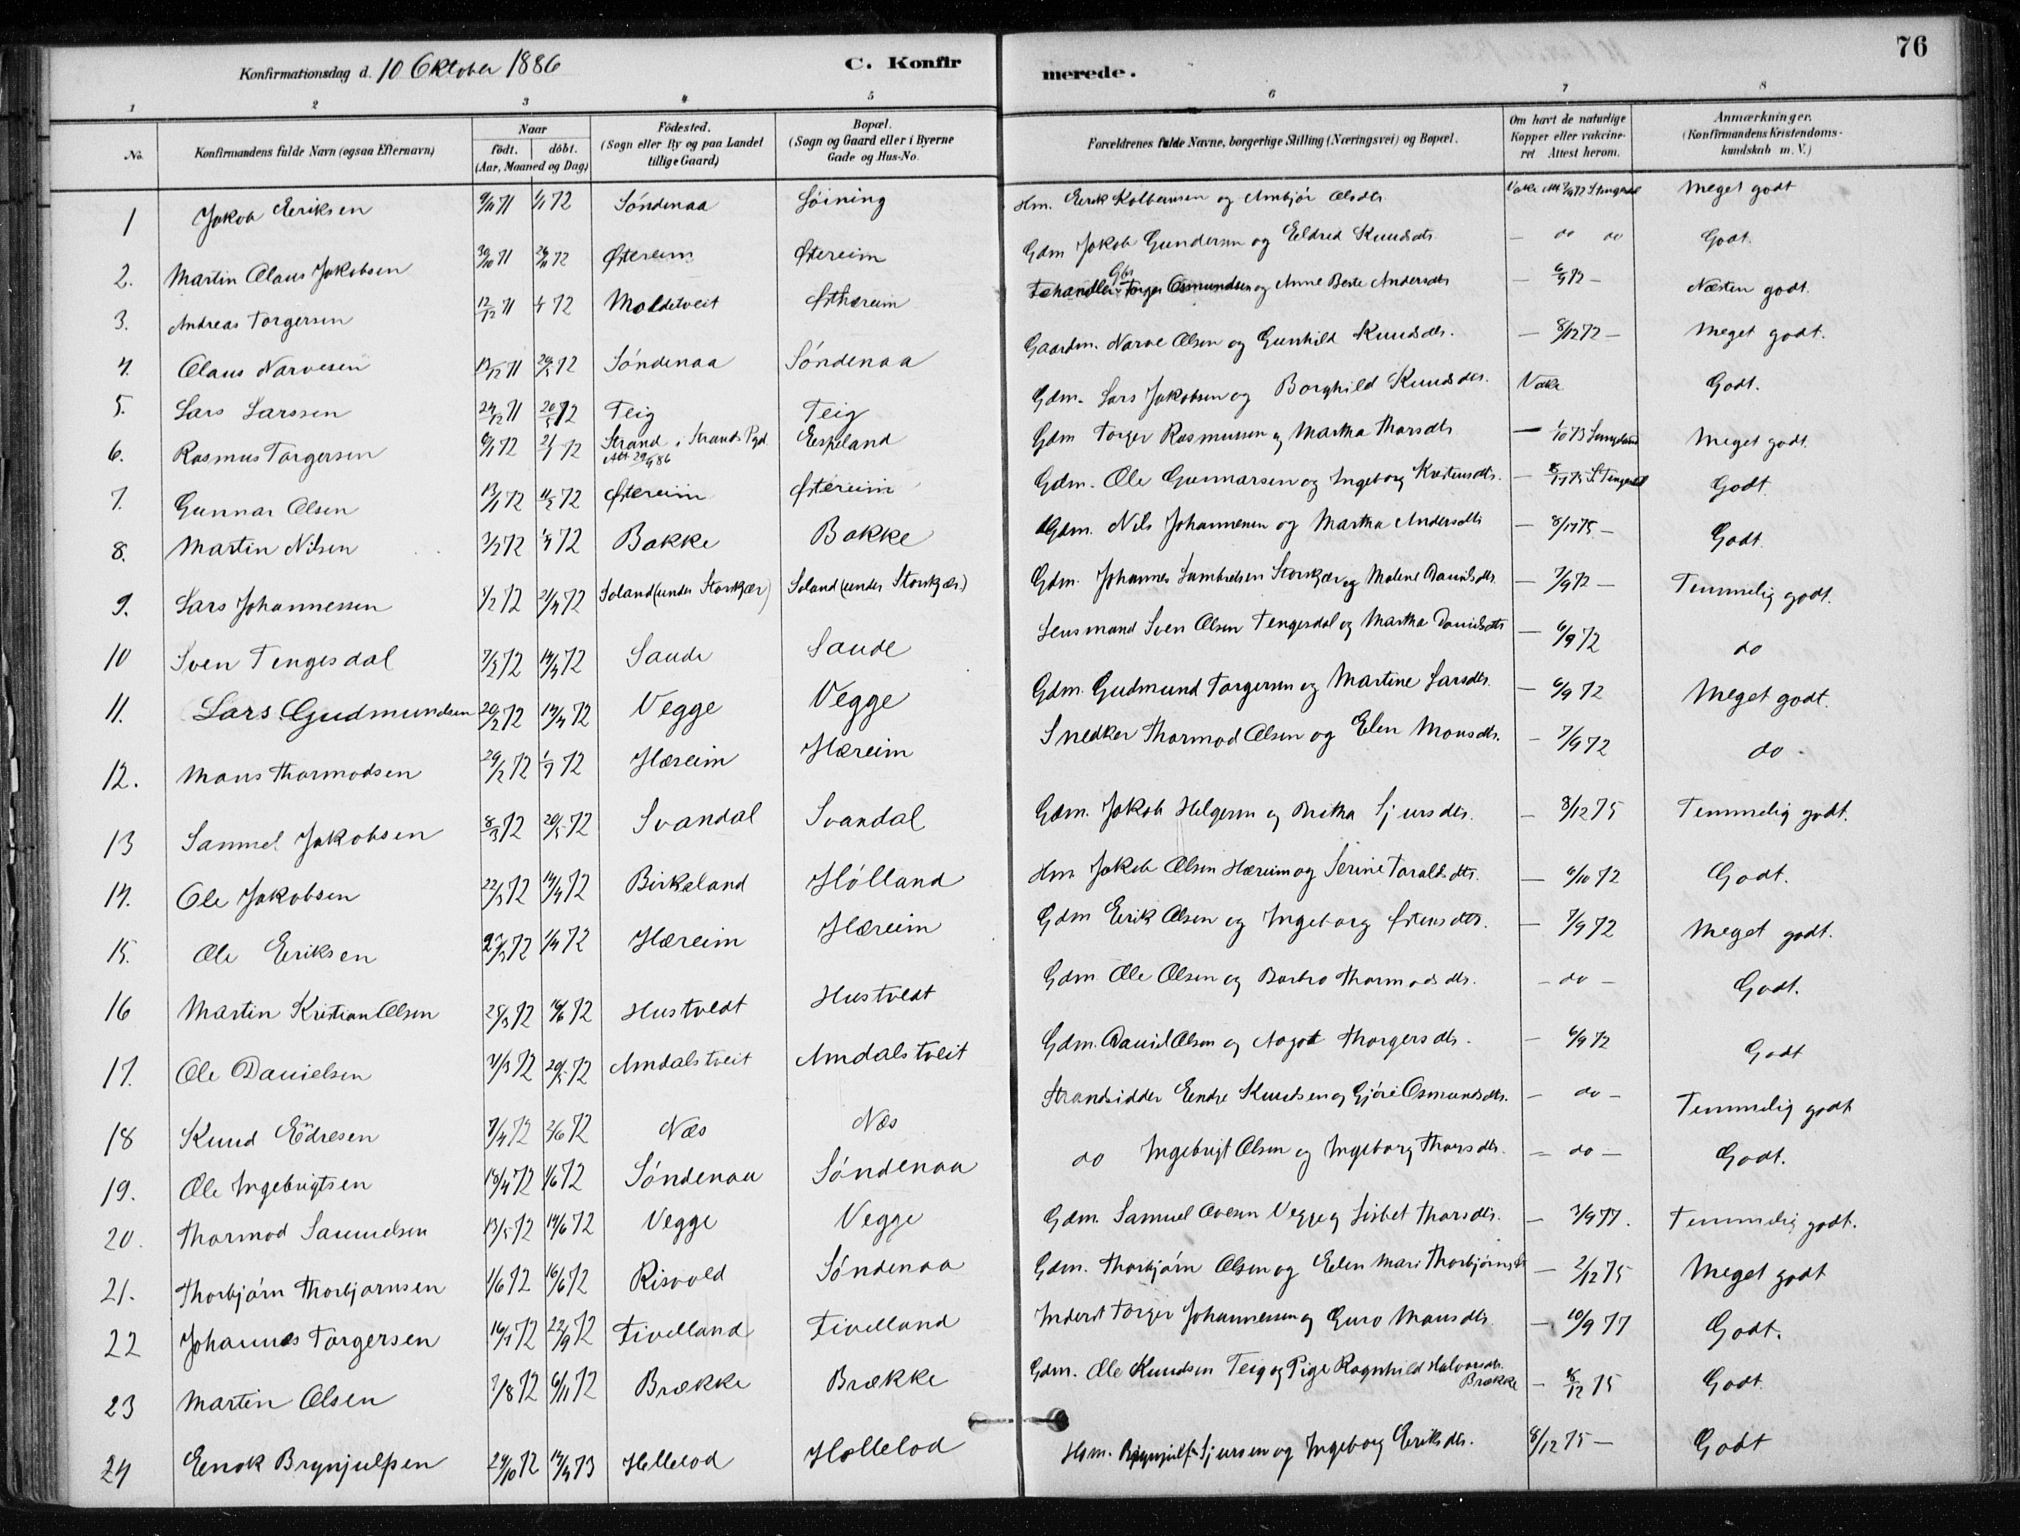 76
Konfirmationsdag d. 10 Oktober 1886 C. Konfirmerede.
1 2 3 4 5 6 7 8
No. Konfirmandens fulde Navn (ogsaa Efternavn) Naar født. døbt. (Aar, Maaned og Dag) Födested. (Sogn eller By og paa Landet tillige Gaard) Bopæl. (Sogn og Gaard eller i Byerne Gade og Hus-No. Forældrenes fulde Navne, borgerlige Stilling (Næringsvei) og Bopæl. Om havt de naturlige Kopper eller vakcineret Attest herom. Anmærkninger. (Konfirmandens Kristendomskundskab m. V.)
1 Jakob Eeriksen 9/11 71 1/1 72 Söndenaa Löining Hm. Eerik Kolbeinsen og Anbjör Olsdtr. Meget godt
2. Martin Olaus Jakobsen 30/10 71 72 Östereim Östereim Gdm Jakob Gundersen og Eldrid Knudsdtr — do do Godt.
3. Andreas Torgersen 12/12 71 72 Moldetveit Östhereim Torger Osmundsen og Anne Berte Andersdtr — 6/9 72 — Næsten godt.
4. Olaus Narvesen 71 72 Söndenaa Söndenaa Gaardm. Narve Olsen og Gunhild Knudsdtr. — 8/12 72 — Meget godt.
5. Lars Larssen 24/12 71 20/5 72 Teig Teig Gdm. Lars Jakobsen og Borghild Knudsdtr. Vake Godt.
6. Rasmus Torgersen 6/1 72 72 Strand i Strands Pgd Att. 29/9 86 Eskeland Gdm Torger Rasmussen og Martha Thorsdtr — 1/10 73 Meget godt.
7. Gunnar Olsen 13/1 72 72 Östereim Östereim Gdm. Ole Gunnarsen og Ingeborg — 8/11 75 Godt.
8. Martin Nilsen 3/2 72 72 Bakke Bakke Gdm. Nils Johannesen og Martha Andersdtr — 8/11 75 — Godt.
9. Lars Johannessen 1/2 72 21/4 72 Soland (under Storskjær) Soland (under Storskjær) Gdm. Johannes Lambretsen Storskjær og Malene Danielsdtr. — 7/9 72 — Temmelig godt.
10 Sven Tengesdal 7/2 72 14/4 72 Saude Saude Lensmand Sven Olsen Tengesdal og Martha Danielsdtr — 6/9 72 do
11. Lars Gudmundsen 20/2 72 14/4 72 Vegge Vegge Gdm. Gudmund Torgersen og Martine Larsdtr. — 6/9 72 Meget godt.
12. Mons Thormodsen 29/2 72 72 Hæreim Hæreim Snedker Thormod Olsen og Elen Monsdtr. — 7/9 72 do -
13 Samuel Jakobsen 8/3 72 20/5 72 Svandal Svandal Gdm. Jakob Helgesen og Britha Sjursdtr. — 8/12 75 Temmelig godt.
14. Ole Jakobsen 22/3 72 14/4 72 Birkeland Hölland Hm Jakob Olsen Hæreim og Serine Taraldsdtr. — 6/10 72 Godt.
15. Ole Eeriksen 72 1/4 72 Hæreim Hæreim Gdm Eerik Olsen og Ingeborg Östensdtr. — 7/9 72 Meget godt.
16 Martin Kristian Olsen 25/3 72 16/6 72 Hustvedt Hustvedt Gdm. Ole Olsen og Barbro Thormodsdtr. — do — Godt.
17. Ole Danielsen 31/3 72 20/5 72 Amdalstveit Amdalstveit Gdm. Daniel Olsen og Aagot Thorgersdtr. — 6/9 72 Godt
18 Knud Eendresen 7/4 72 2/6 72 Næs Næs Strandsidder Eendre Knudsen og Gjöri Osmundsdtr. — do — Temmelig godt
19. Ole Ingebrigtsen 18/4 72 1/6 72 Söndenaa Söndenaa do Ingebrigt Olsen og Ingeborg Thorsdtr. — do — Godt.
20. Thormod Samuelsen 13/5 72 14/6 72 Vegge Vegge Gdm. Samuel Ovesen Vegge og Lisbet Thorsdtr. — 3/9 77. Temmelig godt.
21. Thorbjörn Thorbjörnsen 1/6 72 16/6 72 Risvold Söndenaa Gdm. Thorbjörn Olsen og Eelen Mari Thorbjörnsdtr — 2/12 75 Meget godt
22 Johannes Torgersen 16/7 72 22/9 72 Tivelland Tivelland Inderst Torger Johannessen og Guro Monsdtr. — 10/9 77 Godt.
23 Martin Olsen 7/8 72 6/11 72 Brække Brække Gdm. Ole Knudsen Teig og Pige Ragnhild Halvorsdtr. Brække — 8/12 75 Godt.
24 Eenok Brynjulfsen 24/10 72 14/4 73 Hellelod Hollelod Hsm. Brynjulf Sjursen og Ingeborg Eeriksdtr. 8/12 75 — Godt